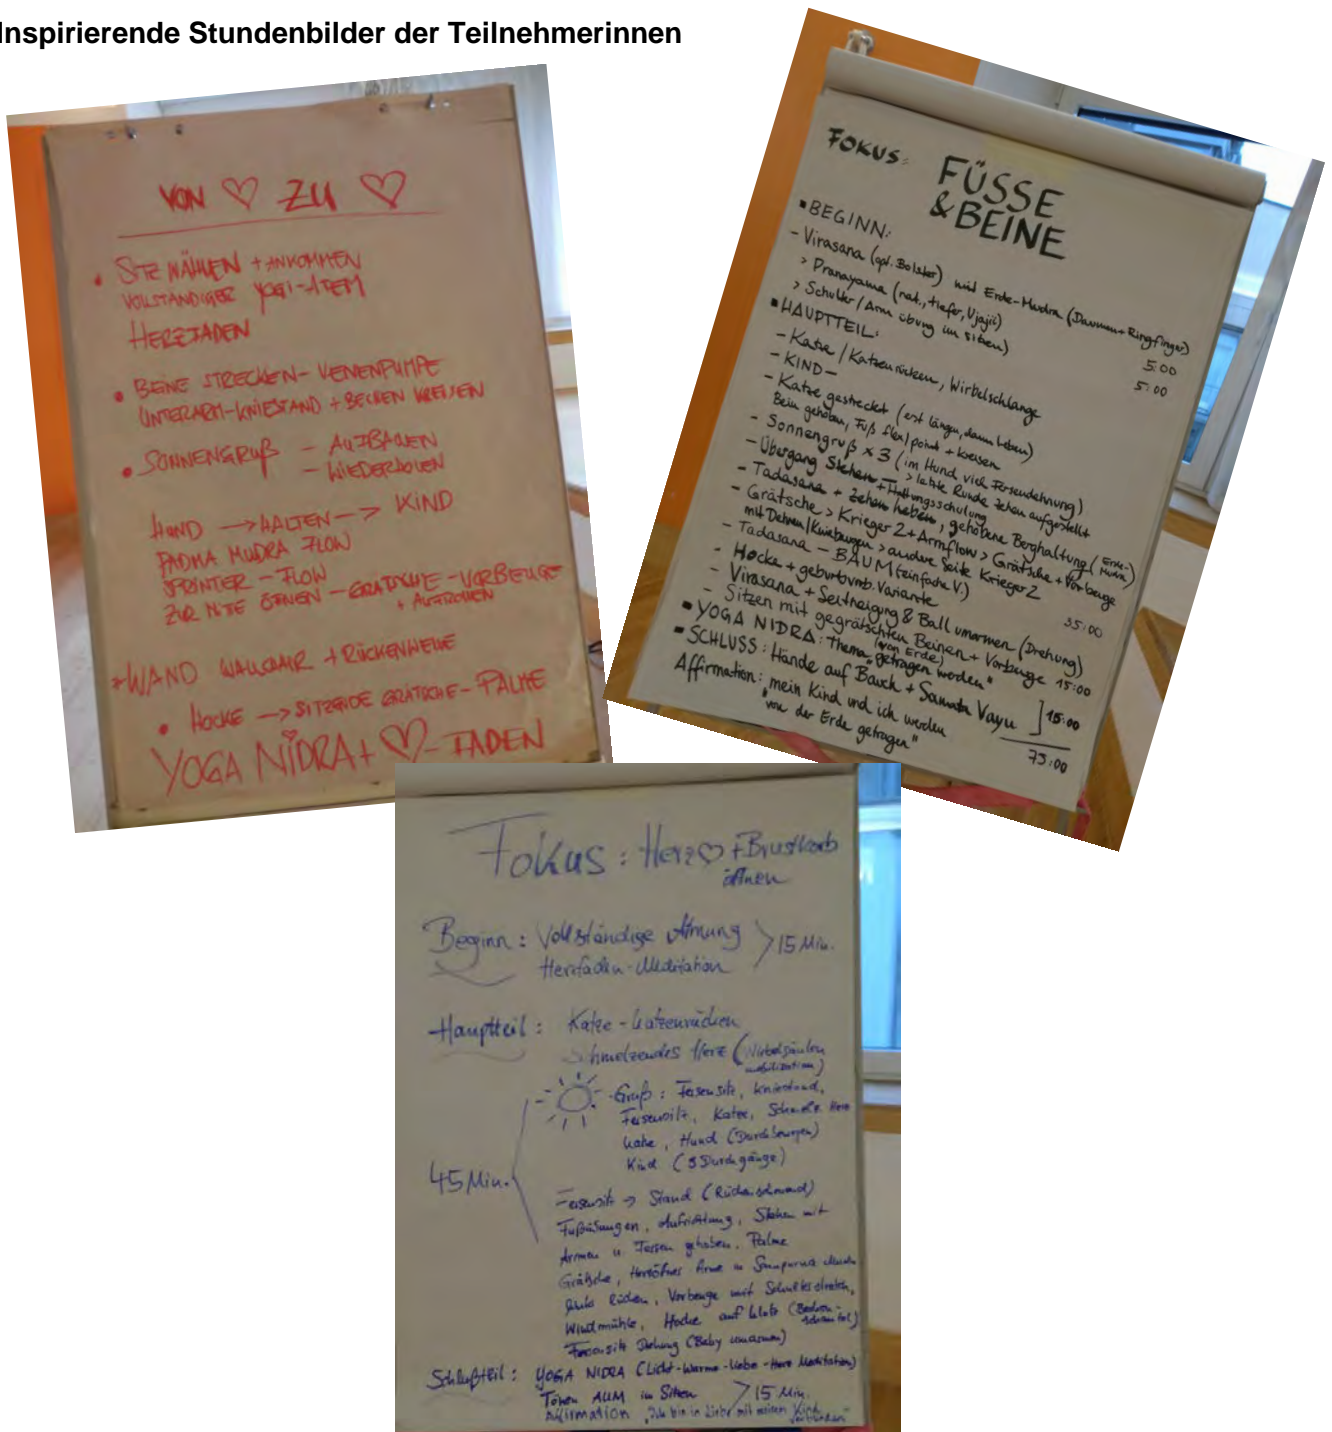 Inspirierende Stundenbilder der Teilnehmerinnen
VON ♡ ZU ♡
• SITZ WÄHLEN + ANKOMMEN
VOLLSTÄNDIGER YOGI-ATEM
HERZFADEN
• BEINE STRECKEN - VENENPUMPE
UNTERARM-KNIESTAND + BECKEN KREISEN
• SONNENGRUß - AUFBAUEN
- WIEDERHOLEN
HUND -> HALTEN -> KIND
PADMA MUDRA FLOW
SPRINTER - FLOW
ZUR MITE ÖFNEN - GRÄTSCHE - VORBEUGE
+ AUFROLLEN
WAND WALLCHAIR + RÜCKENWELLE
• HOCKE -> SITZENDE GRÄTSCHE - PALME
YOGA NIDRA + ♡ - FADEN
FOKUS: FÜSSE
& BEINE
▪ BEGINN:
- Virasana (opt. Bolster) mit Erde-Mudra (Daumen + Ringfinger)
> Pranayama (nat., tiefer, Ujajii) 5:00
> Schulter/Arm übung im sitzen) 5:00
▪ HAUPTTEIL:
- Katze / Katzenrücken, Wirbelschlange
- KIND -
- Katze gestreckt (erst längen, dann heben)
Bein gehoben, Fuß flex/point + kreisen
- Sonnengruß x 3 (im Hund viel Fersendehnung)
> letzte Runde Zehen aufgestellt
- Übergang Stehen + Haltungsschulung
- Tadasana + Zehen heben, gehobene Berghaltung (Erde-Mudra)
- Grätsche > Krieger 2 + Armflow > Grätsche + Vorbeuge
mit Dehnen/Kniebeugen > andere Seite Krieger 2
- Tadasana - BAUM (einfache V.)
- Hocke + geburtsvorb. Variante 35:00
- Virasana + Seitneigung & Ball umarmen (Drehung)
- Sitzen mit gegrätschten Beinen + Vorbeuge
▪ YOGA NIDRA: Thema „getragen werden" 15:00
(von Erde)
▪ SCHLUSS: Hände auf Bauch + Samata Vayu ] 15:00
Affirmation: „mein Kind und ich werden
von der Erde getragen" 75:00
Fokus: Herz ♡ + Brustkorb
öffnen
Beginn: Vollständige Atmung > 15 Min.
Herzfaden-Meditation
Hauptteil: Katze - Katzenrücken
Schmelzendes Herz (Wirbelsäulen
mobilization)
-Gruß: Fersensitz, Kniestand,
Fersensitz, Katze, Schmelz. Herz
Katze, Hund (Durchbewegen)
Kind (3 Durchgänge)
45 Min.
Fersensitz -> Stand (Rückenschmand)
Fußübungen, Aufrichtung, Stehen mit
Armen u. Fersen gehoben, Palme
Grätsche, Herzöffner Arme in
Rücken, Vorbeuge mit Schulterstretch,
Windmühle, Hocke auf Klotz
Fersensitz Drehung (Baby umarmen)
Schlußteil: YOGA NIDRA (Licht-Wärme-Liebe-Herz Meditation)
Tönen AUM im Sitzen > 15 Min.
Affirmation „Ich bin in Liebe mit meinem Kind verbunden"